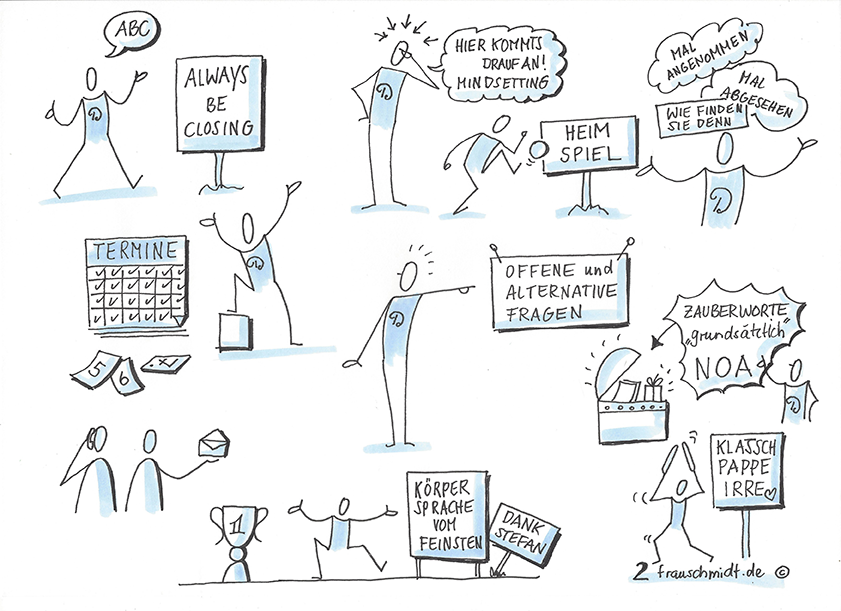 ABC
ALWAYS
BE
CLOSING
HIER KOMMTS
DRAUF AN!
MINDSETTING
HEIM
SPIEL
MAL
ANGENOMMEN
MAL
ABGESEHEN
WIE FINDEN
SIE DENN
D
D
D
TERMINE
5
6
D
D
OFFENE und
ALTERNATIVE
FRAGEN
ZAUBERWORTE
„grundsätzlich"
NOA
D
1
KÖRPER
SPRACHE
VOM
FEINSTEN
DANK
STEFAN
KLATSCH
PAPPE
IRRE
2 frauschmidt.de ©